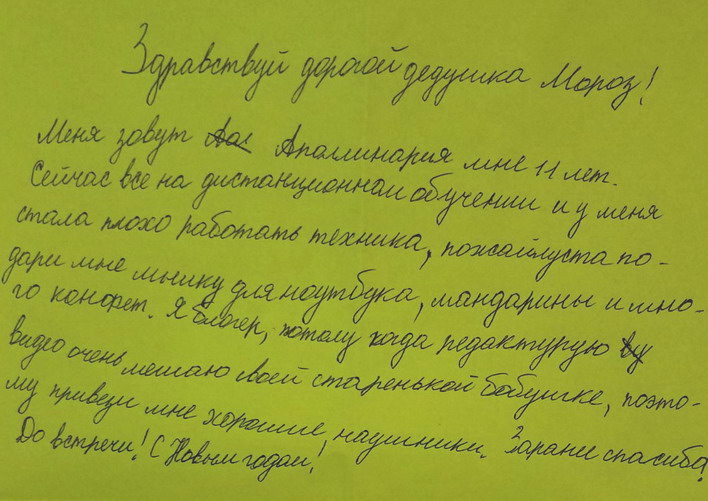 Здравствуй дорогой дедушка Мороз!
Меня зовут Аполлинария мне 11 лет.
Сейчас все на дистанционном обучении и у меня
стала плохо работать техника, пожайлуста по-
дари мне мышку для ноутбука, мандарины и мно-
го конфет. Я блогер, потому когда редактурую
видео очень мешаю своей старенькой бабушке, поэто-
му привези мне хорошие наушники. Зарание спасиба!
До встречи! С Новым годам!